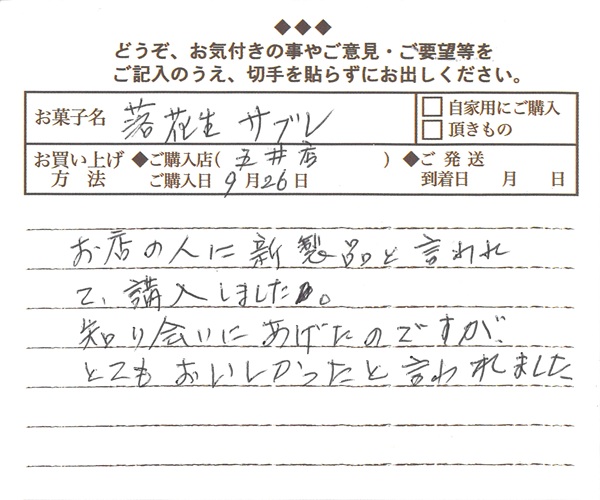 ◆◆◆
どうぞ、お気付きの事やご意見・ご要望等を
ご記入のうえ、切手を貼らずにお出しください。
お菓子名 落花生サブレ □自家用にご購入
□頂きもの
お買い上げ方法 ◆ご購入店(五井店) ◆ご発送
ご購入日 9月26日 到着日 月 日
お店の人に新製品と言われ
て、講入しました。
知り会いにあげたのですが、
とてもおいしかったと言われました